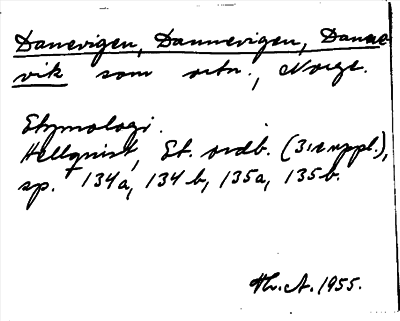 Danevigen, Dannevigen, Danne-
vik som ortn., Norge.
Etymologi.
Hellquist, Et. ordb. (3:e uppl.),
sp. 134a, 134b, 135a, 135b.
Hr. A. 1955.